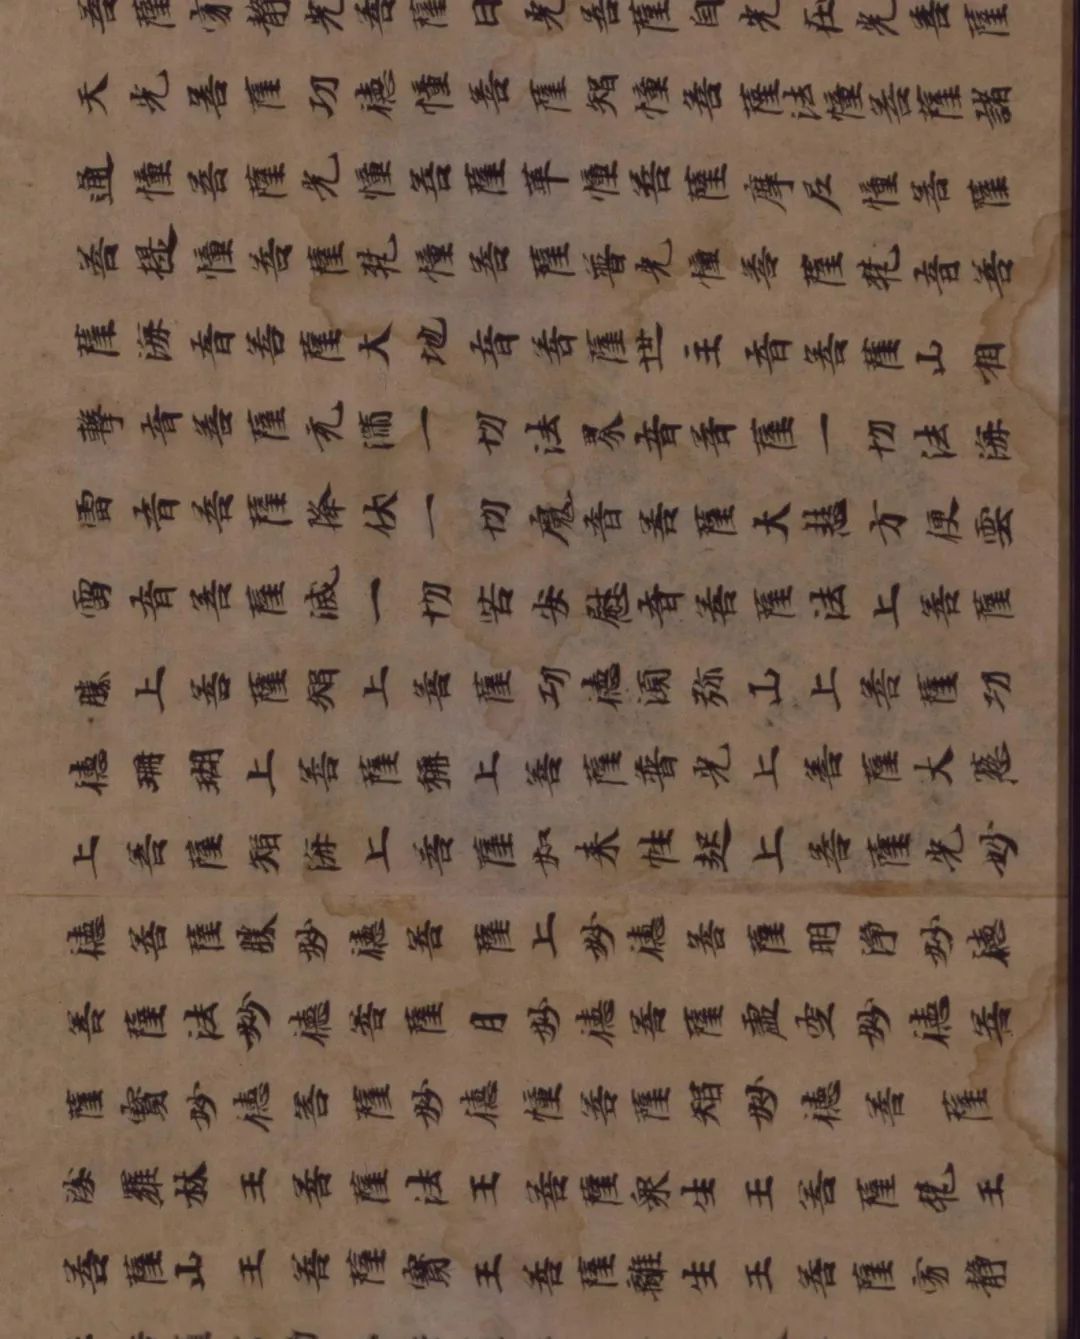 菩薩寂静光菩薩日光菩薩自光在光菩薩
天光菩薩功德幢菩薩智幢菩薩法幢菩薩諸
通幢菩薩光幢菩薩華幢菩薩摩尼幢菩薩
菩提幢菩薩梵幢菩薩普光幢菩薩梵音菩
薩海音菩薩大地音菩薩世主音菩薩山相
擊音菩薩充滿一切法界音菩薩一切法海
雷音菩薩降伏一切魔音菩薩大慈方便雲
雷音菩薩滅一切苦安慰音菩薩法上菩薩
勝上菩薩智上菩薩功德須弥山上菩薩功
德珊瑚上菩薩稱上菩薩普光上菩薩大慈
上菩薩智海上菩薩如来性起上菩薩光妙
德菩薩勝妙德菩薩上妙德菩薩明淨妙德
菩薩法妙德菩薩月妙德菩薩虛空妙德菩
薩寶妙德菩薩妙德幢菩薩智妙德菩薩
娑羅林王菩薩法王菩薩衆生王菩薩梵王
菩薩山王菩薩寶王菩薩離生王菩薩寂静